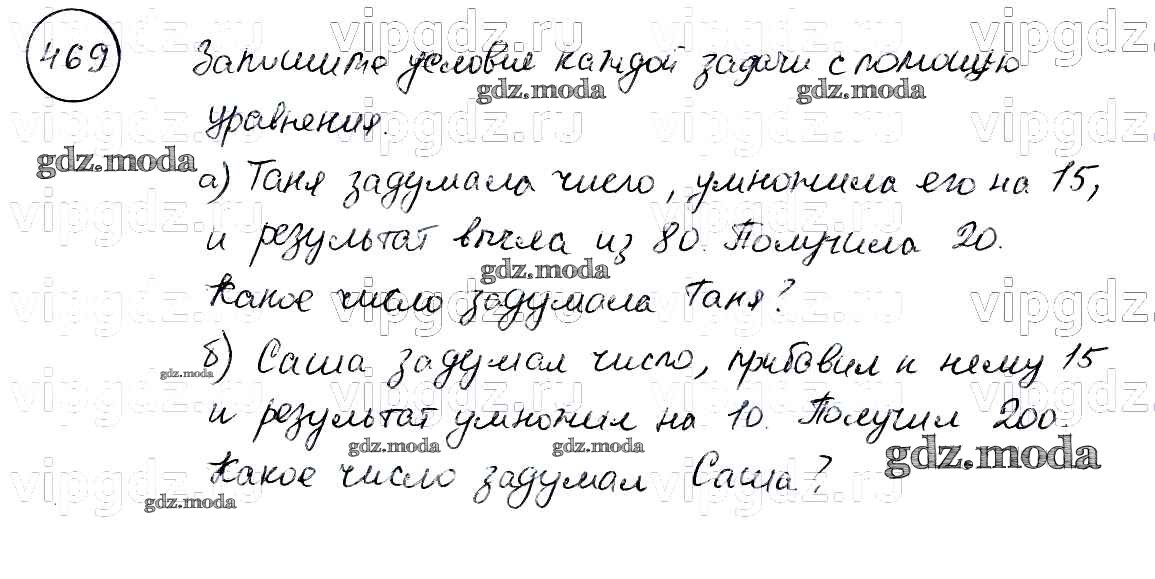 469 Запишите условия каждой задачи с помощью
уравнения.
а) Таня задумала число, умножила его на 15,
и результат вычла из 80. Получила 20.
Какое число задумала Таня?
б) Саша задумал число, прибавил к нему 15
и результат умножил на 10. Получил 200.
Какое число задумал Саша?
vipgdz.ru
gdz.moda